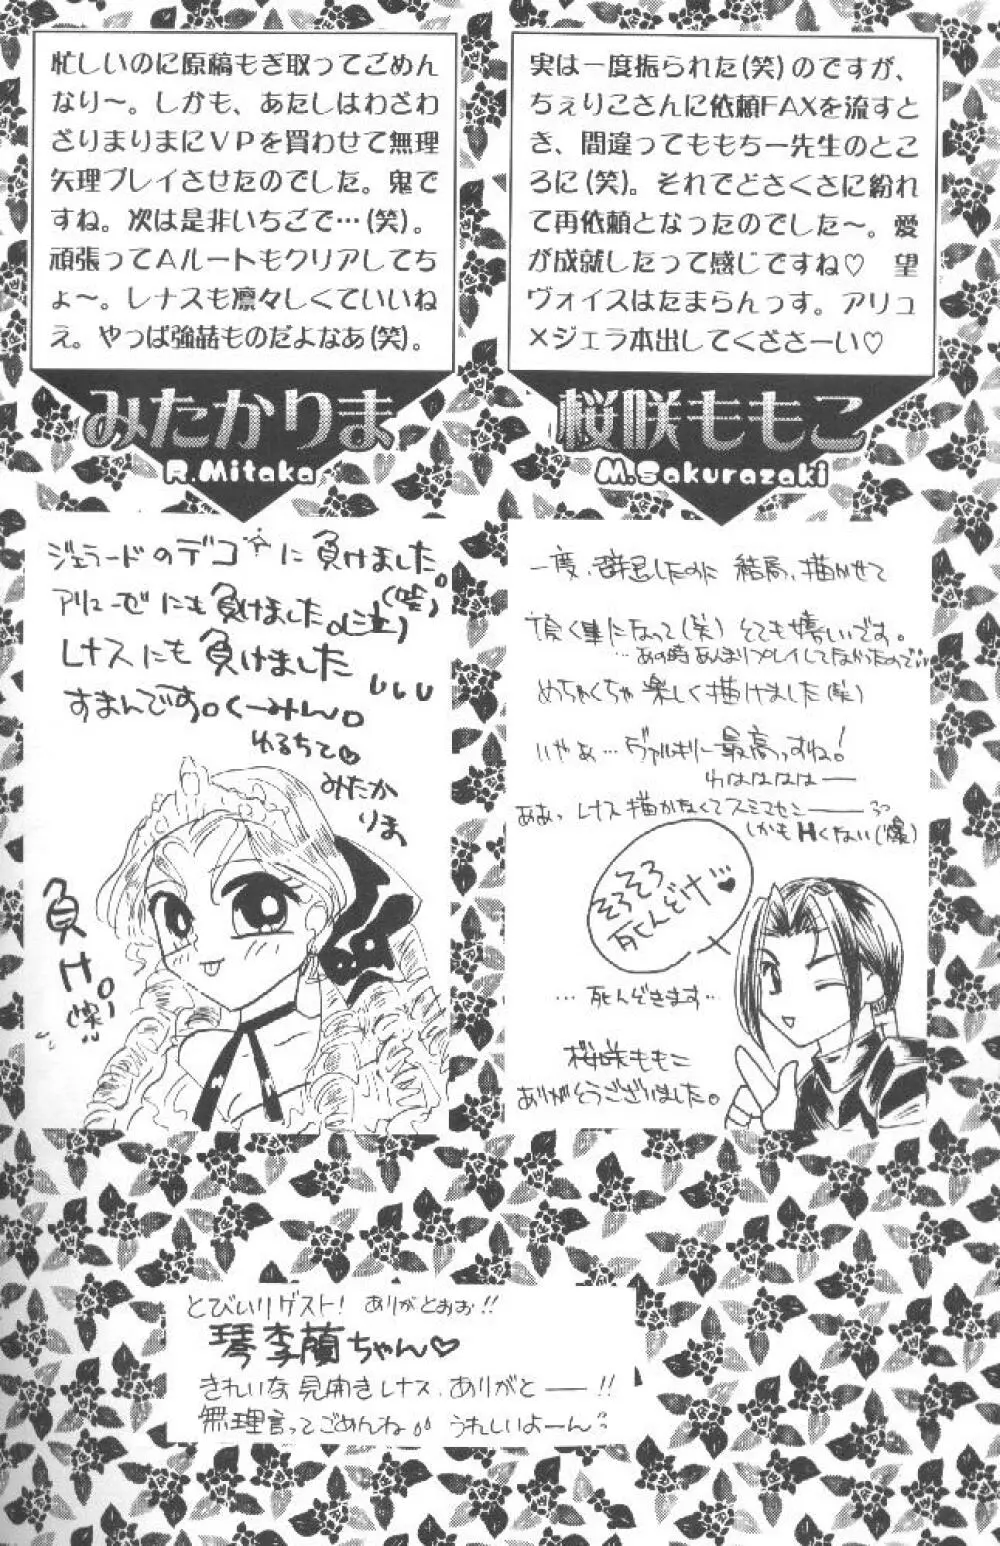 忙しいのに原稿もぎ取ってごめん
なり〜。しかも、あたしはわざわ
ざりまりまにVPを買わせて無理
矢理プレイさせたのでした。鬼で
すね。次は是非いちごで…(笑)。
頑張ってAルートもクリアしてち
ょ〜。レナスも凛々しくていいね
ぇ。やっぱ強話ものだよなあ(笑)。
みたかりま
R.Mitaka
ジェラードのデコに負けました。(嘘)
アリューゼにも負けました。(泣)
レナスにも負けました
すまんです。くーみん。
ゆるちて♡
みたか
りま
負け。(爆)
実は一度振られた(笑)のですが、
ちぇりこさんに依頼FAXを流すと
き、間違ってももちー先生のとこ
ろに(笑)。それでどさくさに紛れ
て再依頼となったのでした〜。愛
が成就したって感じですね♡ 望
ヴォイスはたまらんっす。アリュ
×ジェラ本出してくださーい♡
桜咲ももこ
M.Sakurazaki
一度、辞退したのに 結局、描かせて
頂く事になって(笑) とても嬉しいです。
…あの時あんまりプレイしてなかったので…
めちゃくちゃ楽しく描けました(笑)
いやぁ…ヴァルキリー最高っすね!
わははははー
ああっ レナス描かなくてスミマセンーー
しかもHくない(爆)
そろそろ
死んどけ♡
…死んどきます…
桜咲ももこ
ありがとうございました。
とびいりゲスト! ありがとおお!!
琴李蘭ちゃん♡
きれいな見開きレナス、ありがとーー!!
無理言ってごめんね。 うれしいよーん